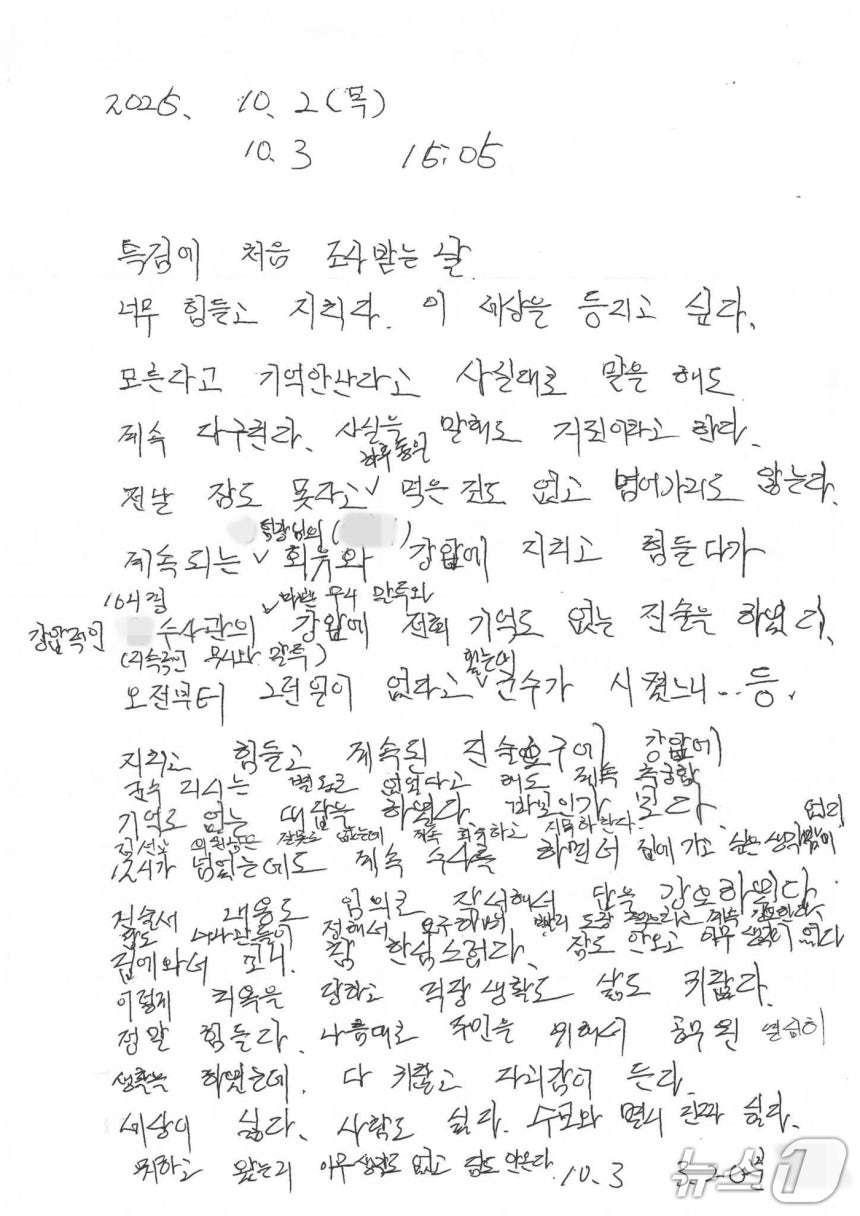 2025. 10. 2(목)
10. 3 15:05
특검에 처음 조사받는 날.
너무 힘들고 지치다. 이 세상을 등지고 싶다.
모른다고 기억안난다고 사실대로 말을 해도
계속 다구친다. 사실을 말해도 거짓이라고 한다.
하루종일
전날 잠도 못자고 먹은 것도 없고 멍어가리도 않는다.
팀장님의 ( )
계속되는 회유와 강압에 지치고 힘들다가
10시경 다른 무시 말투와
강압적인 수사관의 강압에 전혀 기억도 없는 진술을 하였다.
(지속적인 무시와 말투) 했는데
오전부터 그런일이 없다고 군수가 시켰느니... 등.
지치고 힘들고 계속된 진술요구에 강압에
군수 지시는 별도로 없었다고 해도 계속 추궁함
기억도 없는 대답을 하였다. 바보인가 보다.
김선교 의원님은 잘못도 없는데 계속 회유하고 지목하란다. 없이
12시가 넘었는데도 계속 수사를 하면서 집에 가고 싶은 생각만이
진술서 내용도 임의로 작성해서 답을 강요하였다.
수사관들이 정해서 요구하며 빨리 도장 찍으라고 계속 강요한다.
집에와서 보니. 참 한심스럽다. 잠도 안오고 아무 생각이 없다
이렇게 치욕을 당하고 직장생활도 삶도 귀찮다.
정말 힘들다. 나름대로 주민을 위해서 공무원 열심히
생활을 하였는데. 다 귀찮고 자괴감이 든다.
세상이 싫다. 사람도 싫다. 수모와 멸시 진짜 싫다.
왔는지 아무생각도 없고 잠도 안온다. 10. 3 3:20분
뉴스1